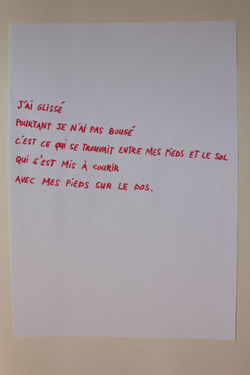 J'AI GLISSÉ
POURTANT JE N'AI PAS BOUGÉ
C'EST CE QUI SE TROUVAIT ENTRE MES PIEDS ET LE SOL
QUI S'EST MIS À COURIR
AVEC MES PIEDS SUR LE DOS.